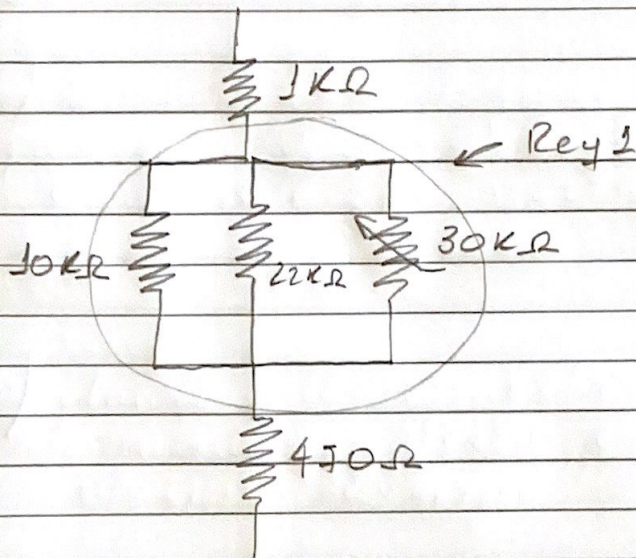 1KΩ
Req 1
10KΩ
22KΩ
30KΩ
470Ω